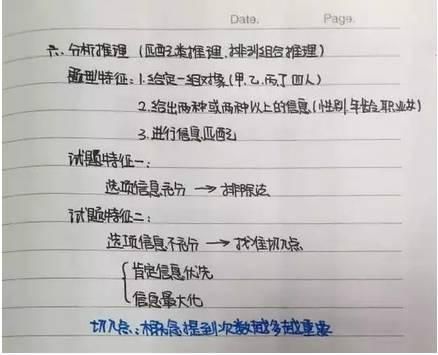 Date. Page.
六、分析推理（匹配类推理、排列组合推理）
题型特征：1.给定一组对象（甲、乙、丙、丁四人）
2.给出两种或两种以上的信息（性别、年龄、职业等）
3.进行信息匹配
试题特征一：
选项信息充分 → 排除法
试题特征二：
选项信息不充分 → 找准切入点
肯定信息优先
信息最大化
切入点：相关信息提到次数越多越重要